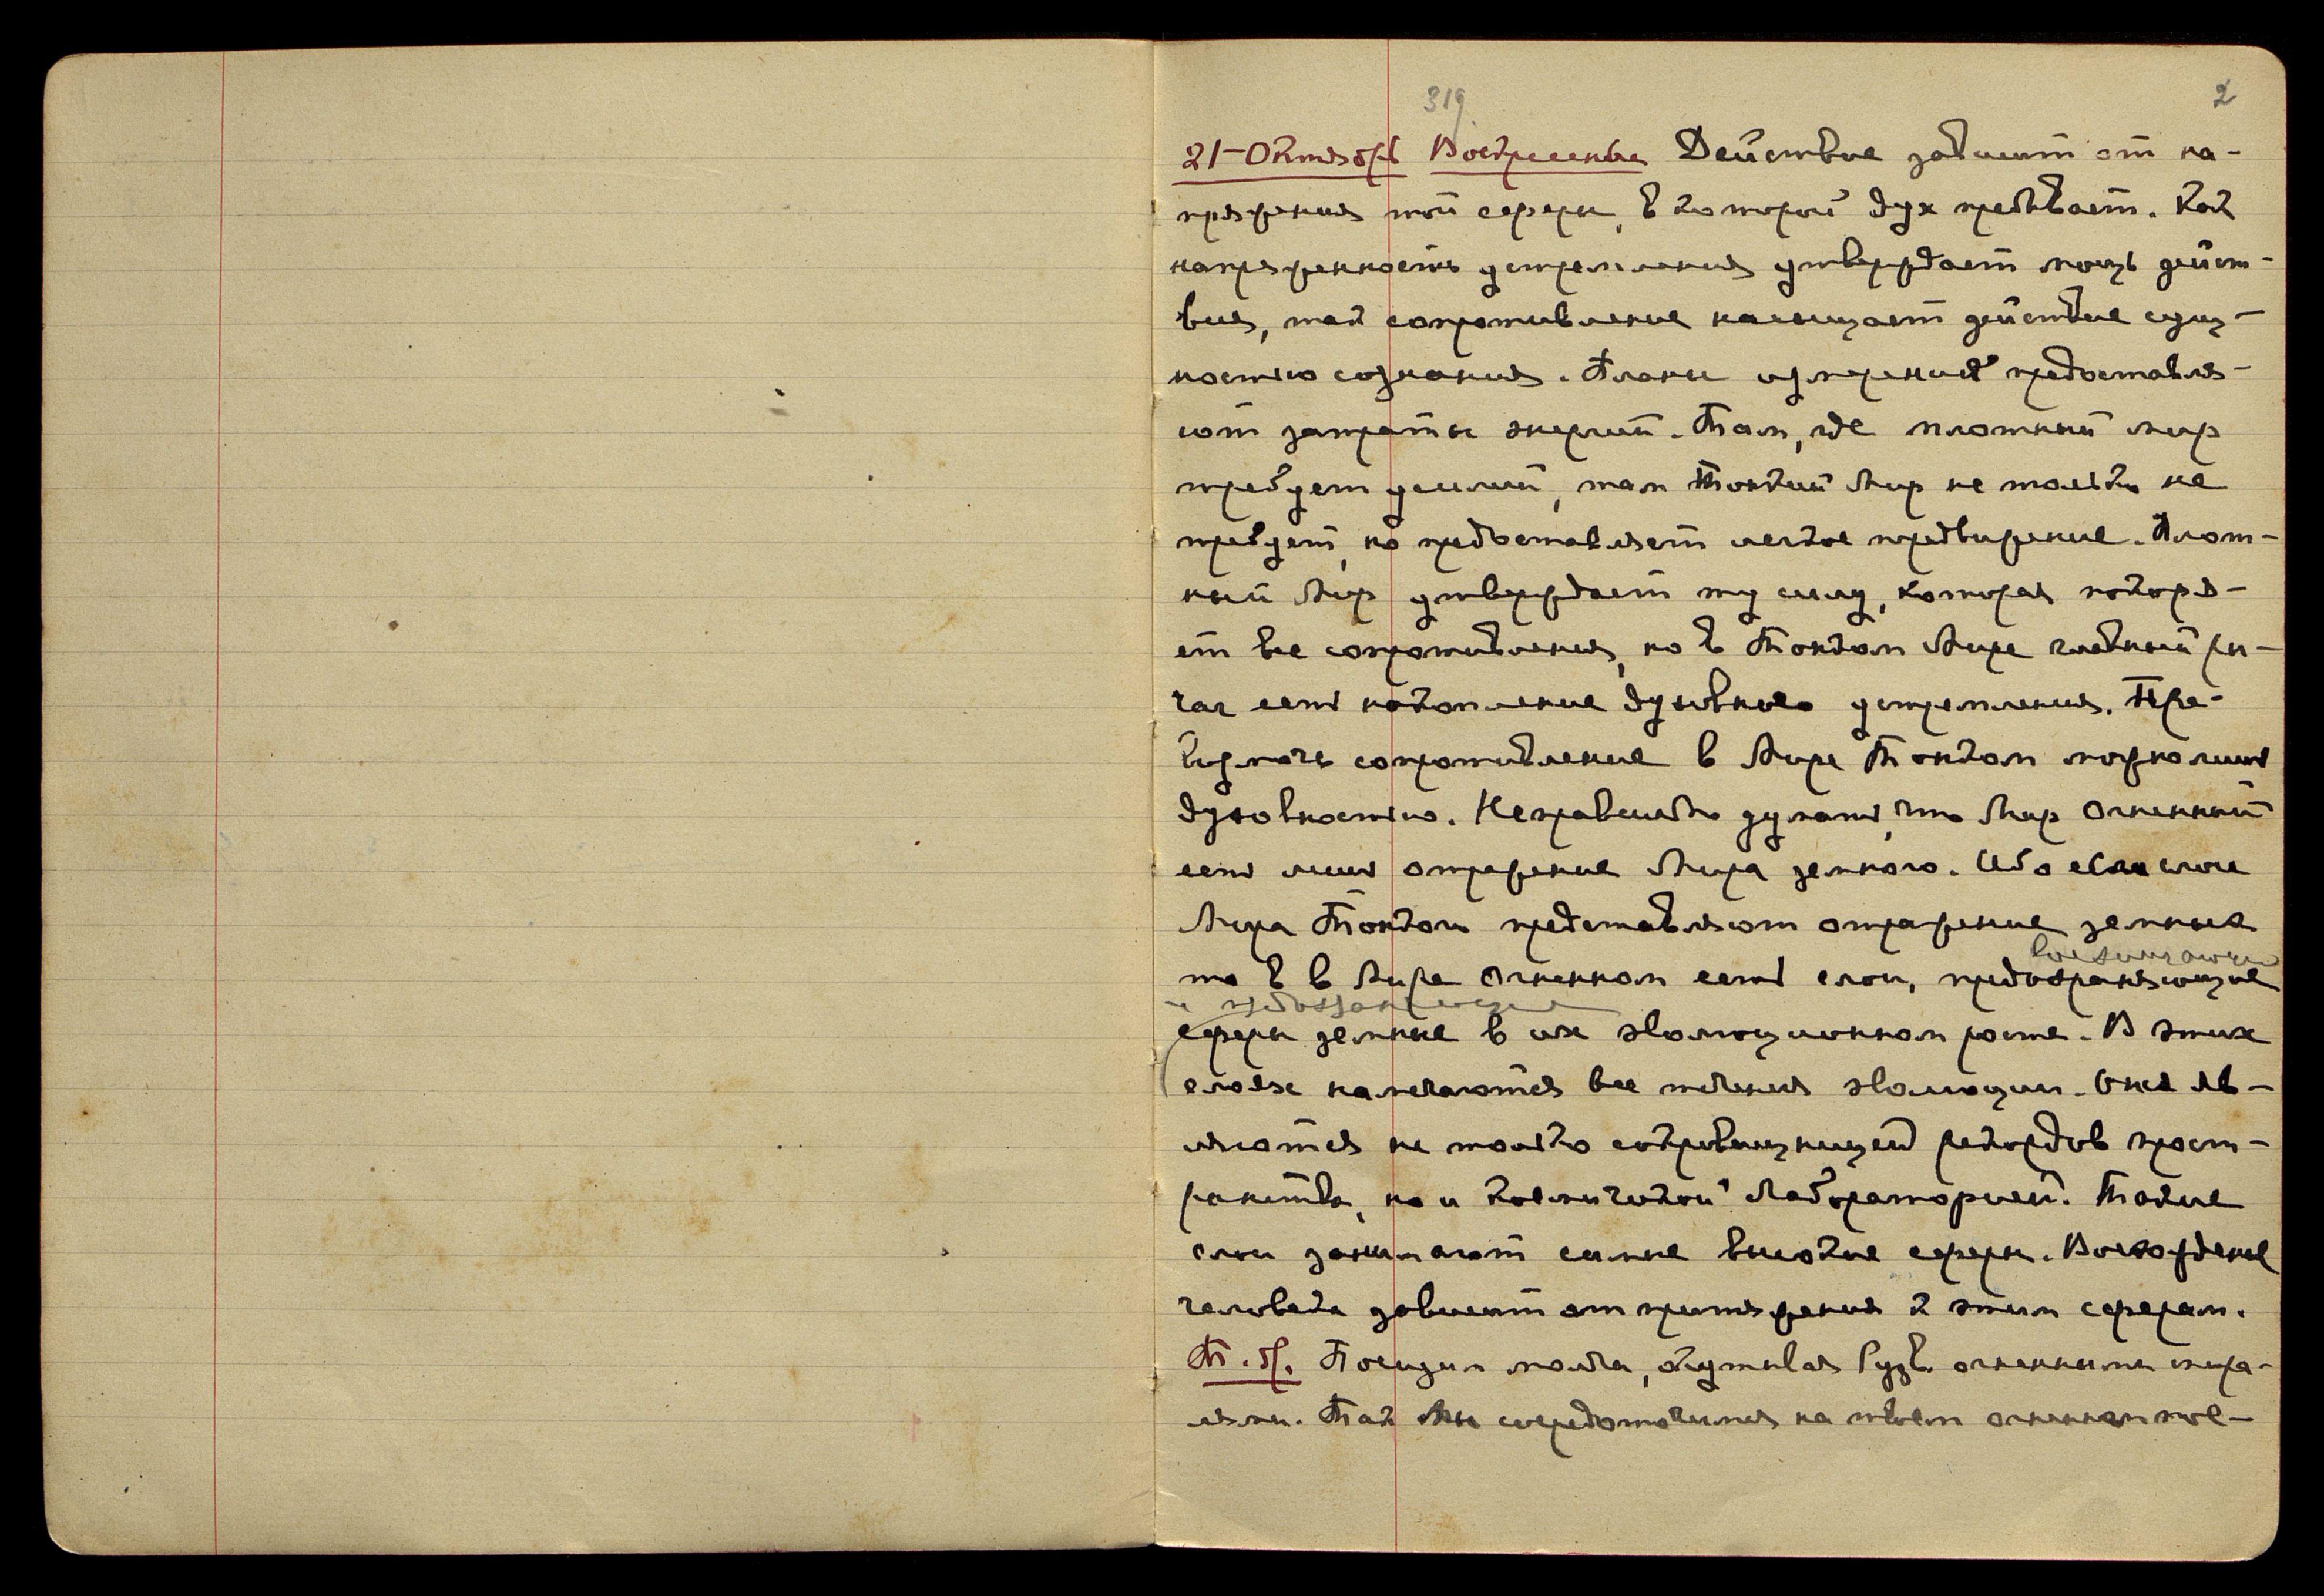 319
2
21–Октябрь Воскресенье Действие зависит от на-
пряжения той сферы, в которой дух пребывает. Как
напряженность устремления утверждает мощь дейст-
вия, так сопротивление насыщает действие сущ-
ностью сознания. Планы измерений предоставля-
ют затраты энергий. Там, где плотный мир
требует усилий, там Тонкий Мир не только не
требует, но предоставляет легкое продвижение. Плот-
ный Мир утверждает ту силу, которая покоря-
ет все сопротивления, но в Тонком Мире главный ры-
чаг есть накопление духовного устремления. Пре-
возмочь сопротивление в Мире Тонком можно лишь
духовностью. Неправильно думать, что Мир Огненный
есть лишь отражение Мира земного. Ибо если слои
Мира Тонкого представляют отражение земные
то в Мире Огненном есть слои, предохраняющие
сферы земные в их эволюционном росте. В этих
слоях намечаются все течения эволюции. Они яв-
ляются не только сокровищницей рекордов прост-
ранства, но и космической Лабораторией. Такие
слои занимают самые высокие сферы. Восхождение
человека зависит от притяжения к этим сферам.
Т. бр. Посидим молча, окутывая Гудв. огненными спира-
лями. Так Мы сосредоточимся на твоем огненном тре-